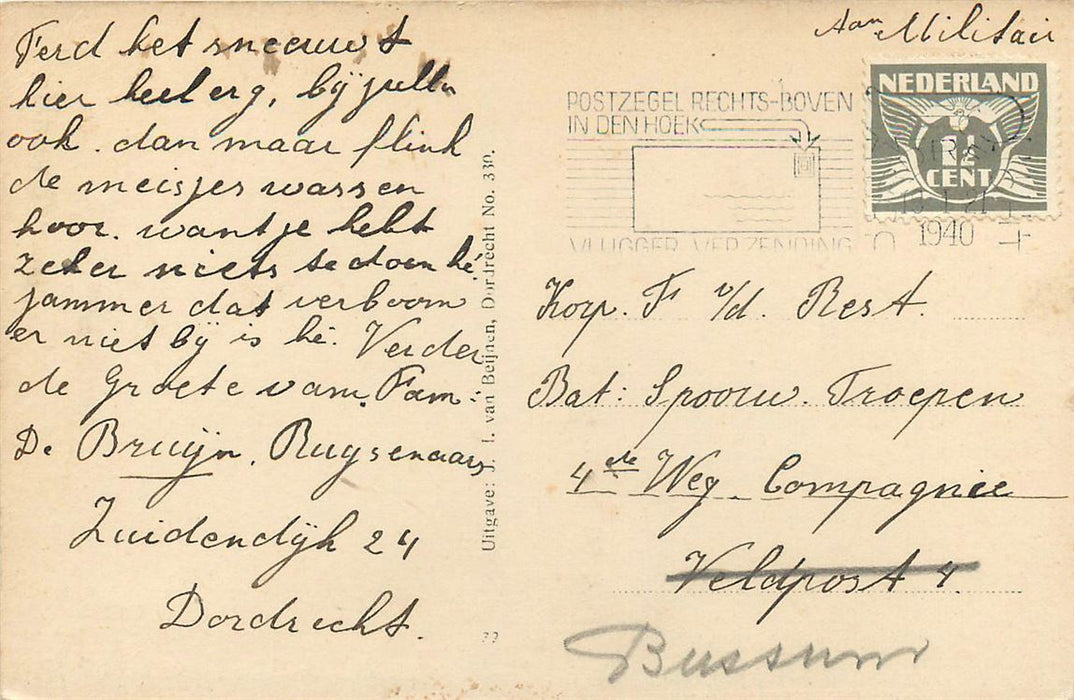 Ferd het sneeuwt
hier heel erg, bij jullie
ook. dan maar flink
de meisjes wassen
hoor. want je hebt
zeker niets te doen hé.
jammer dat verboom
er niet bij is hé. Verder
de Groete van. Fam:
De Bruijn. Rugsenaars
Zuidendijk 24
Dordrecht.
Uitgave: J. I. van Beijnen, Dordrecht No. 339.
Aan Militair
NEDERLAND
CENT
POSTZEGEL RECHTS-BOVEN
IN DEN HOEK
VLUGGER VERZENDING
1940
Korp. F v/d. Rest.
Bat: Spoorw. Troepen
4de Weg Compagnie
Veldpost 4.
Bussum